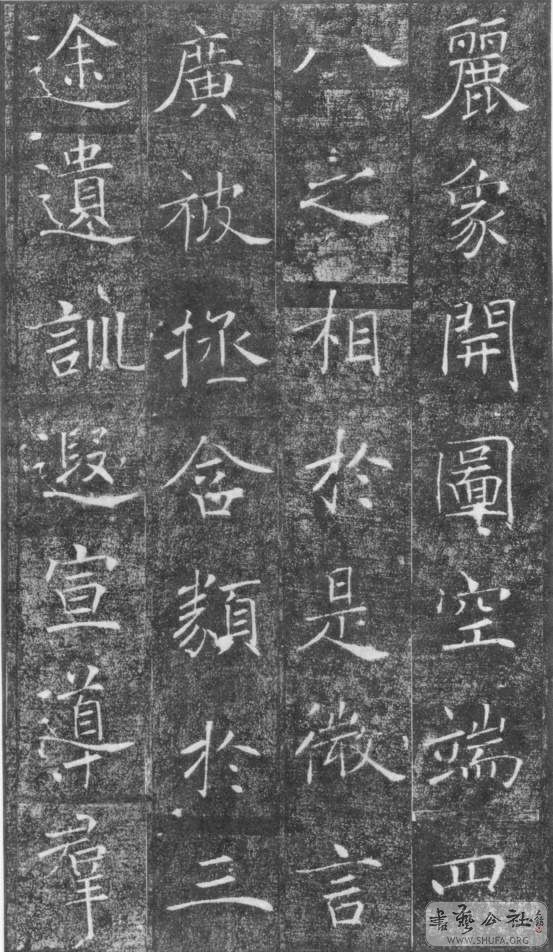 麗象開圖空端四
八之相於是微言
廣被拯含類於三
途遺訓遐宣導群
書藝公社
WWW.SHUFA.ORG